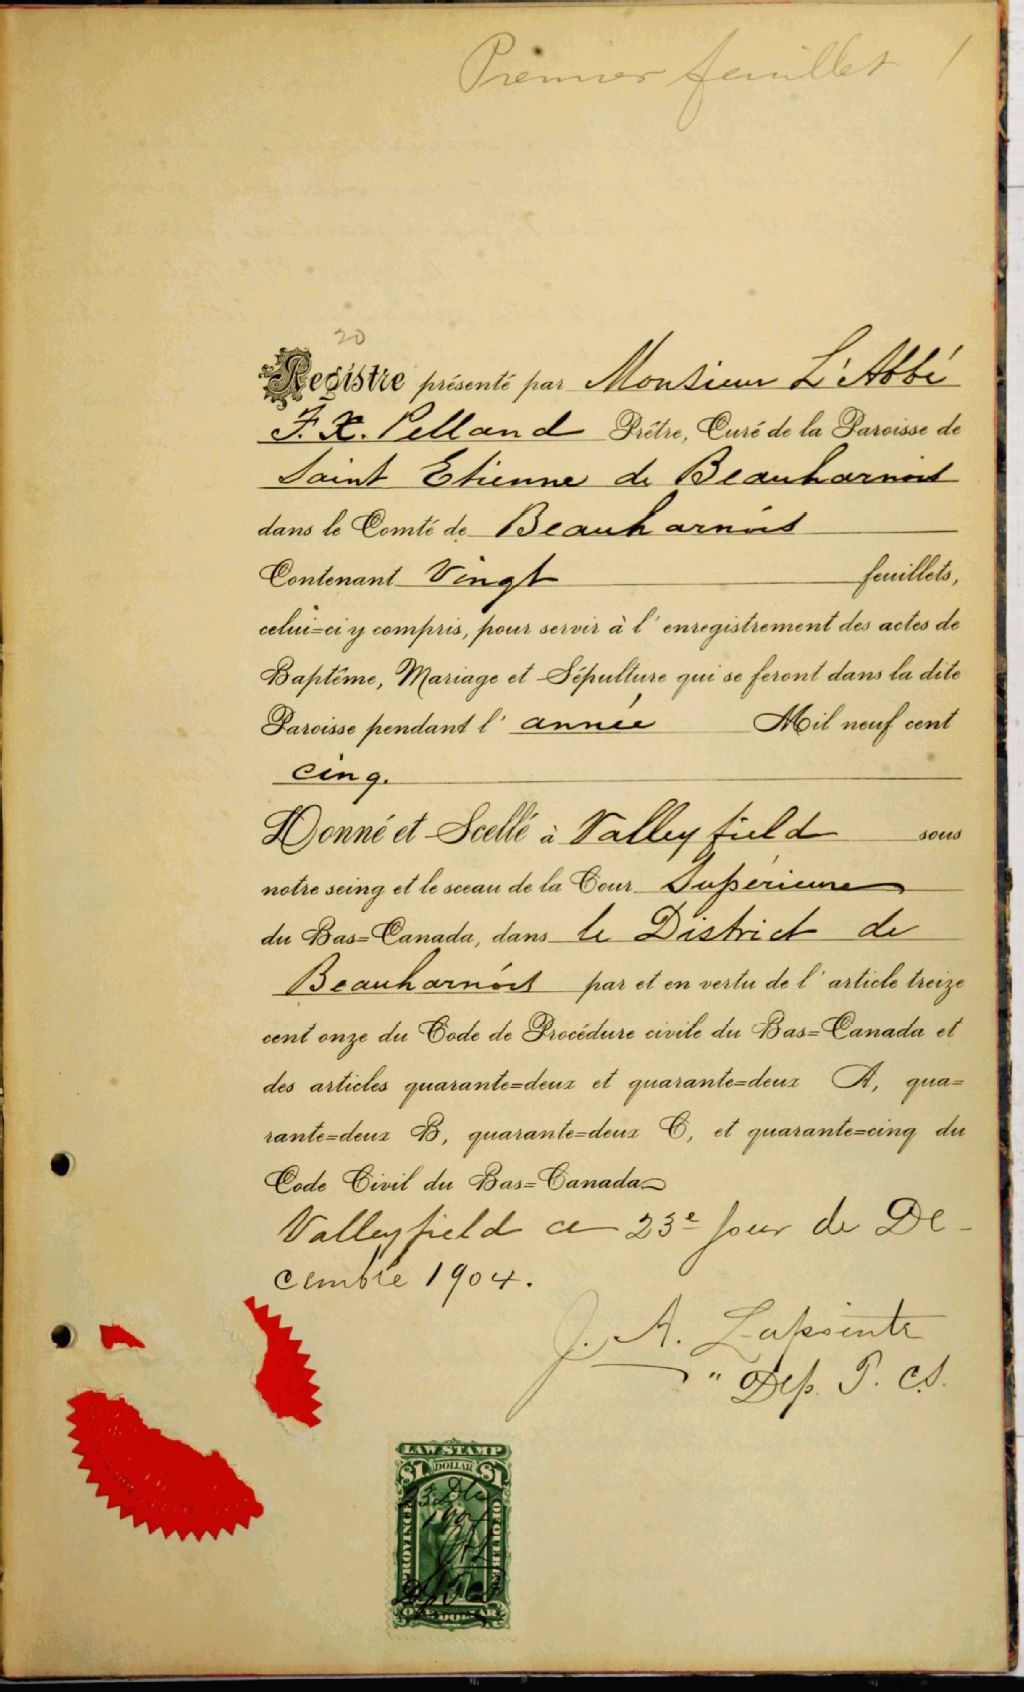 Premier feuillet 1
20
Registre présenté par Monsieur L'Abbé
F. X. Pelland Prêtre, Curé de la Paroisse de
Saint Etienne de Beauharnois
dans le Comté de Beauharnois
Contenant Vingt feuillets,
celui=ci y compris, pour servir à l'enregistrement des actes de
Baptême, Mariage et Sépulture qui se feront dans la dite
Paroisse pendant l'année Mil neuf cent
cinq.
Donné et Scellé à Valleyfield sous
notre seing et le sceau de la Cour Supérieure
du Bas=Canada, dans le District de
Beauharnois par et en vertu de l'article treize
cent onze du Code de Procédure civile du Bas=Canada et
des articles quarante=deux et quarante=deux A, qua=
rante=deux B, quarante=deux C, et quarante=cinq du
Code Civil du Bas=Canada
Valleyfield ce 23e Jour de De-
cembre 1904.
J. A. Lapointe
" Dep. P. C.S.
LAW STAMP
$1 DOLLAR $1
PROVINCE
23 Dec
1904
JAL
Dep P CS
ONE DOLLAR